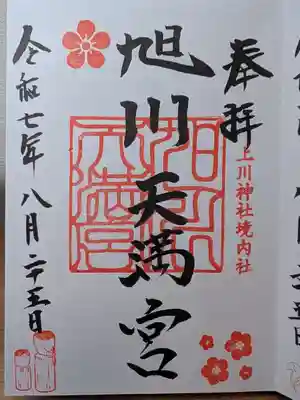 奉拝
上川神社境内社
旭川天満宮
令和七年八月二十五日